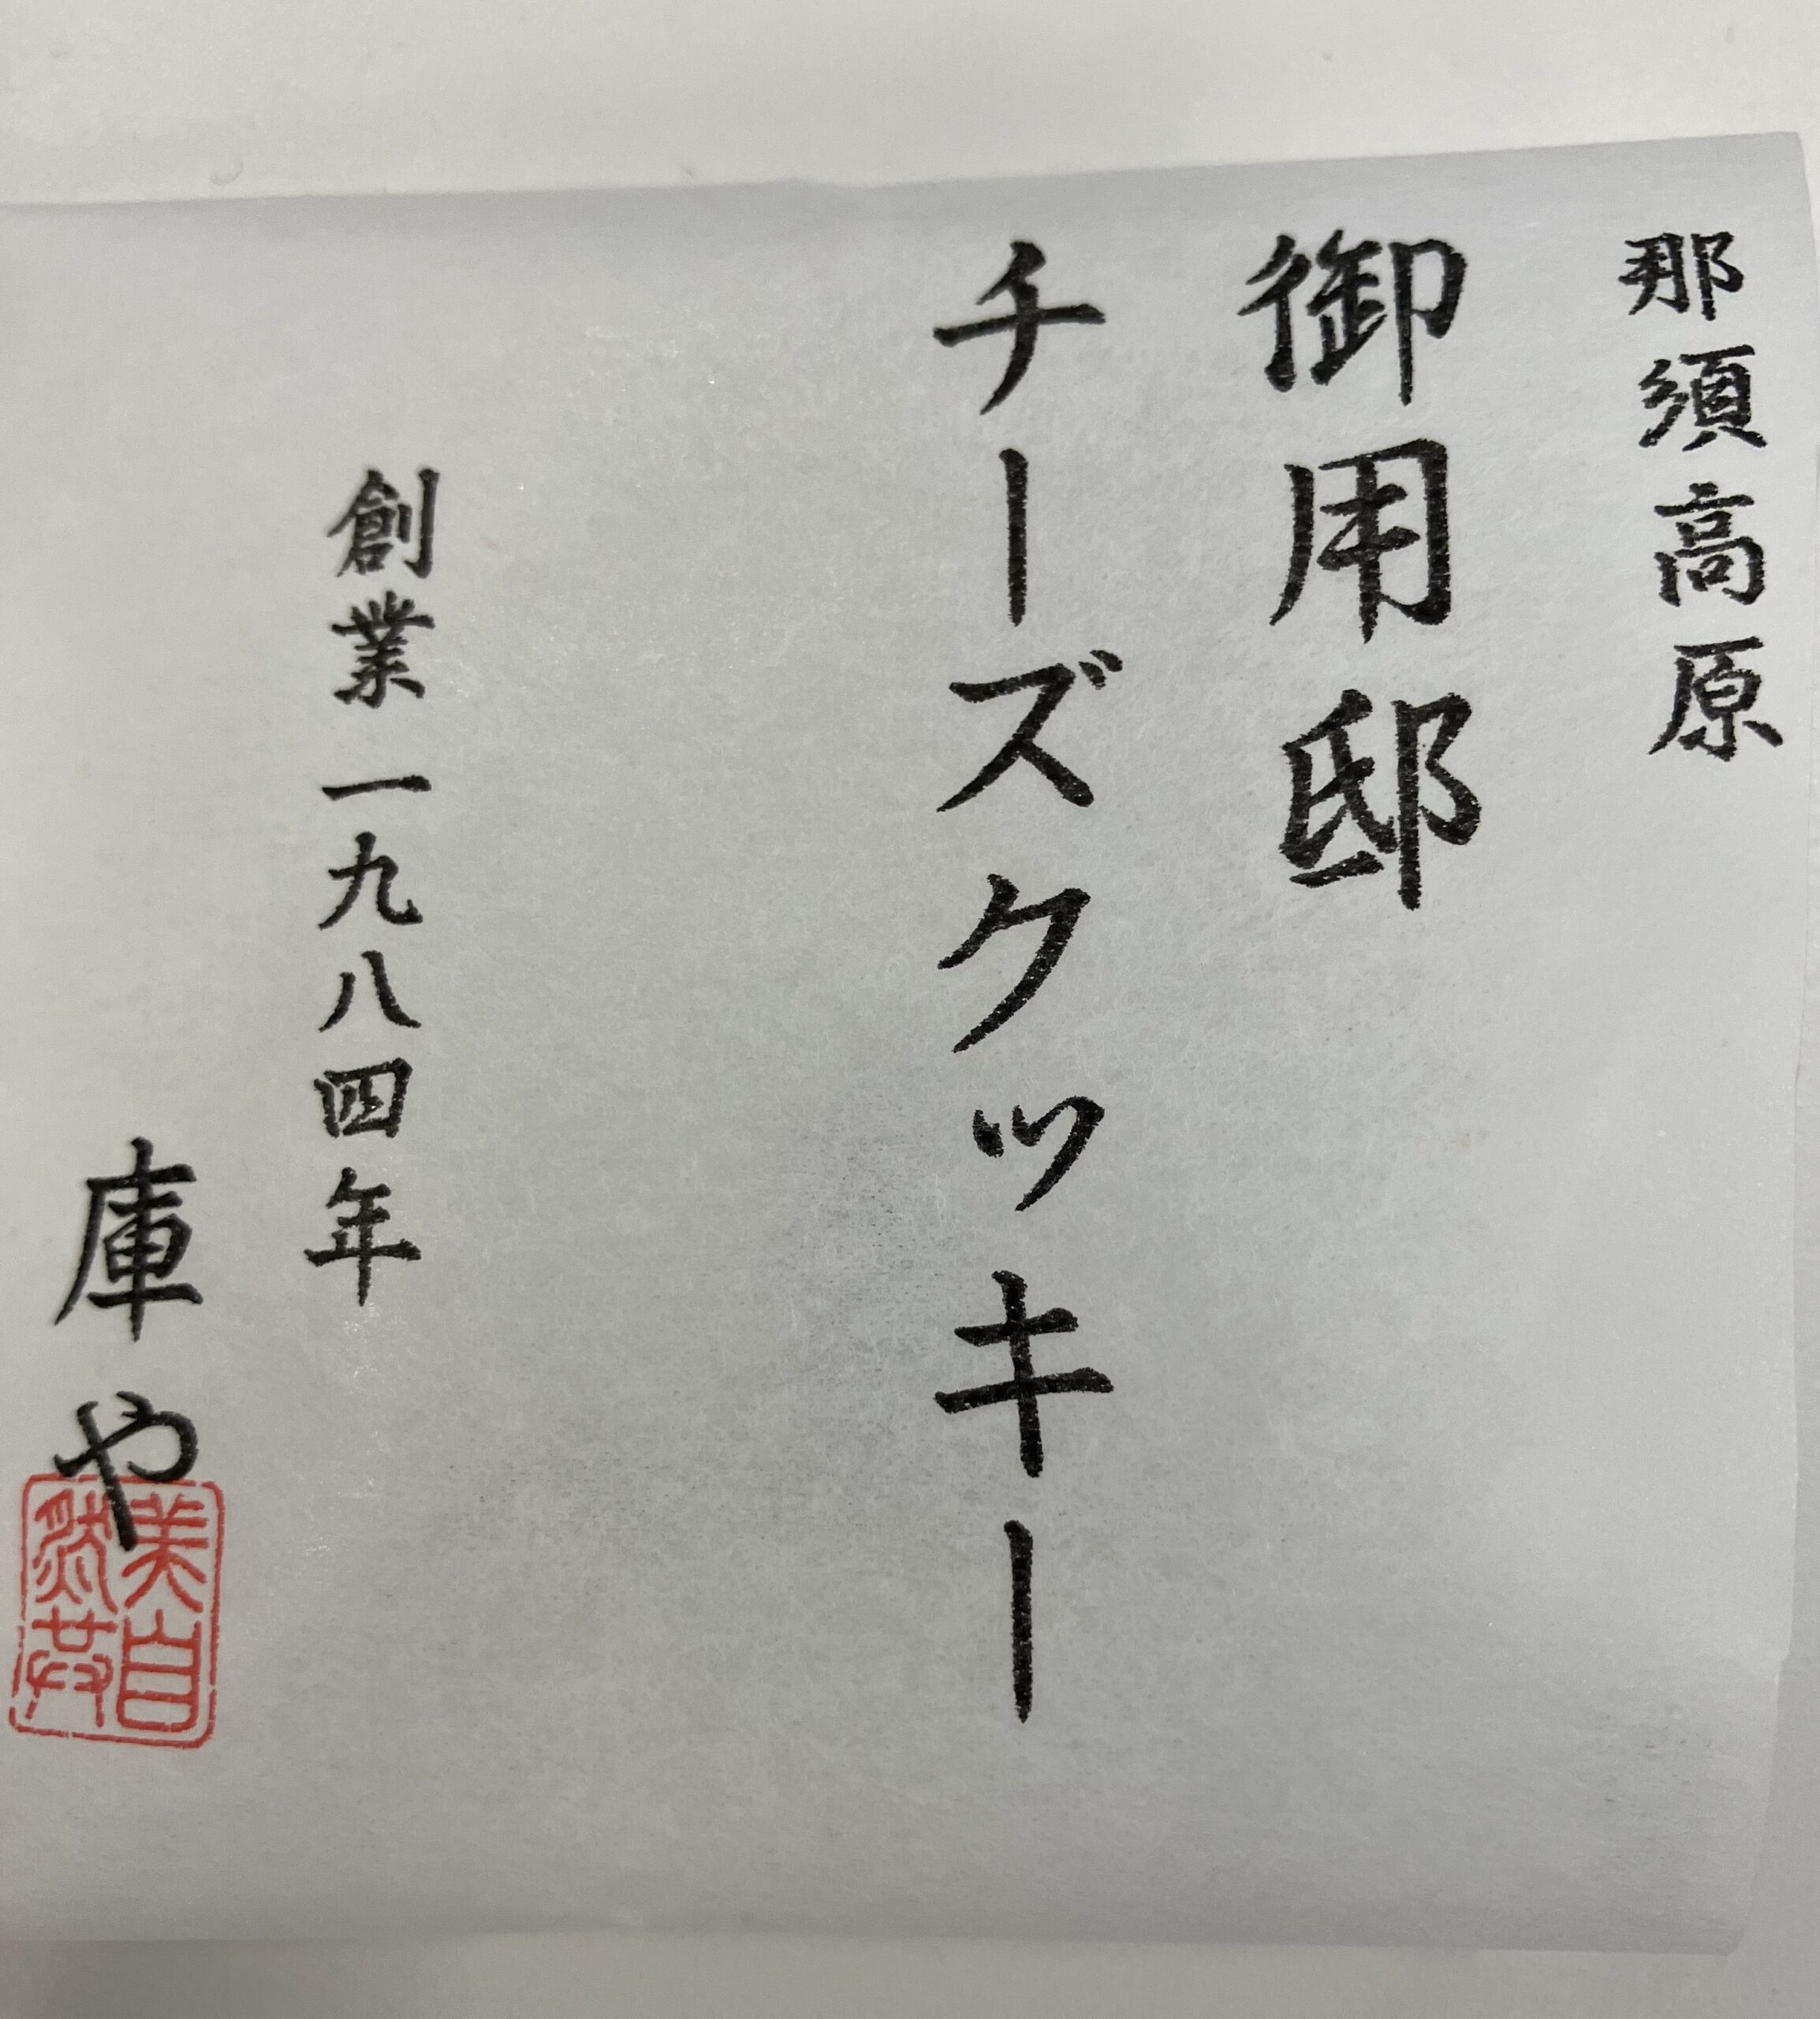 那須高原
御用邸
チーズクッキー
創業一九八四年
庫や
美自
然共